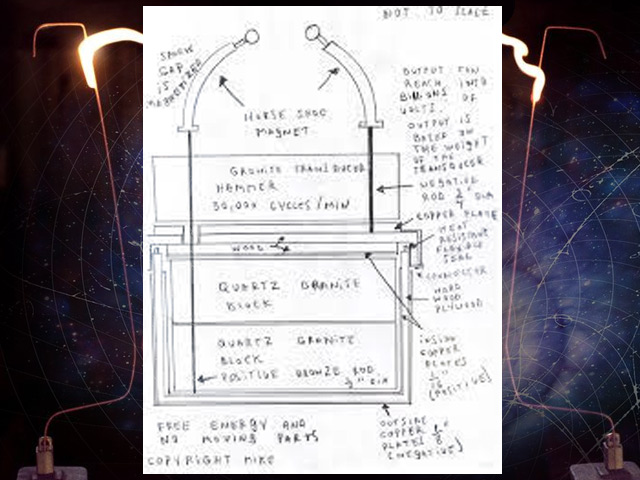 NOT TO SCALE
SPARK
GAP
IS
MAGNETIZED
HORSE SHOE
MAGNET
OUTPUT CAN
REACH INTO
BILLIONS OF
VOLTS.
OUTPUT IS
BASED ON
THE WEIGHT
OF THE
TRANSDUCER
GRANITE TRANSDUCER
HAMMER
30,000 CYCLES/MIN
NEGATIVE
ROD 3/4" DIA
COPPER PLATE
HEAT
RESISTANT
SEAL
WOOD
CONNECTOR
HARD
WOOD
PLYWOOD
QUARTZ GRANITE
BLOCK
QUARTZ GRANITE
BLOCK
POSITIVE BRONZE ROD
DIA
INSIDE
COPPER
PLATES
(POSITIVE)
FREE ENERGY AND
NO MOVING PARTS
OUTSIDE
COPPER
PLATES
(NEGATIVE)
COPYRIGHT MIKE